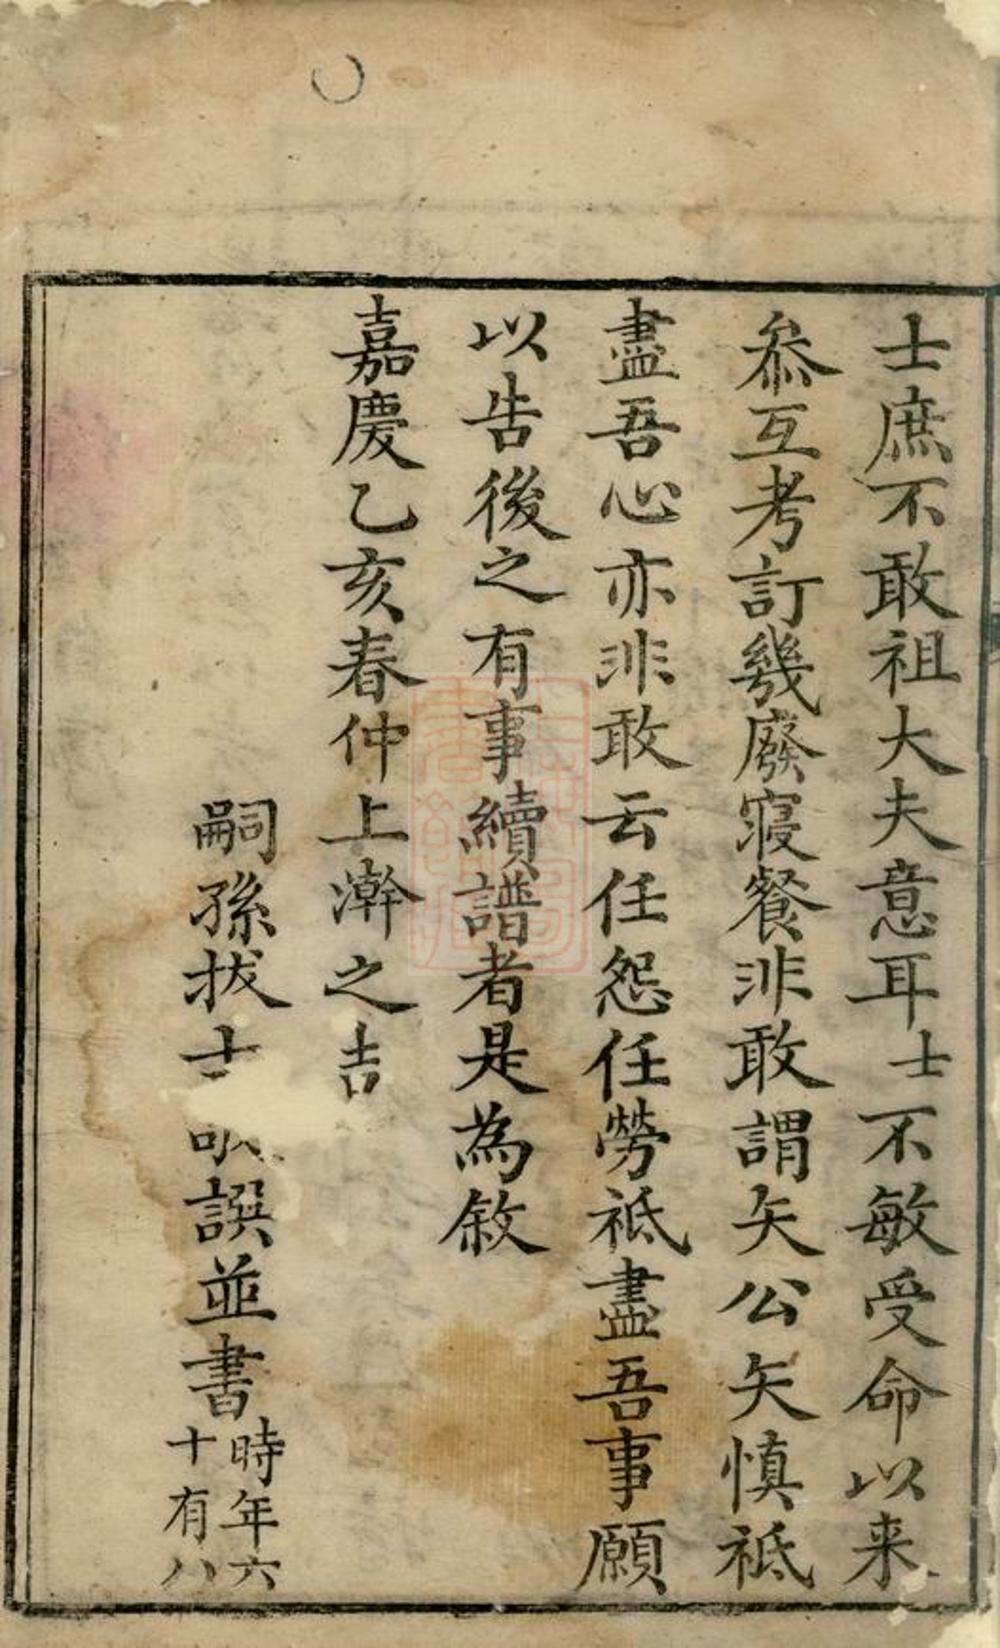 士庶不敢祖大夫意耳士不敏受命以来
叅互考訂幾廢寢餐非敢謂矢公矢慎祗
盡吾心亦非敢云任怨任勞祗盡吾事願
以告後之有事續譜者是為敘
嘉慶乙亥春仲上澣之吉
嗣孫拔士譔並書
時年六
十有八